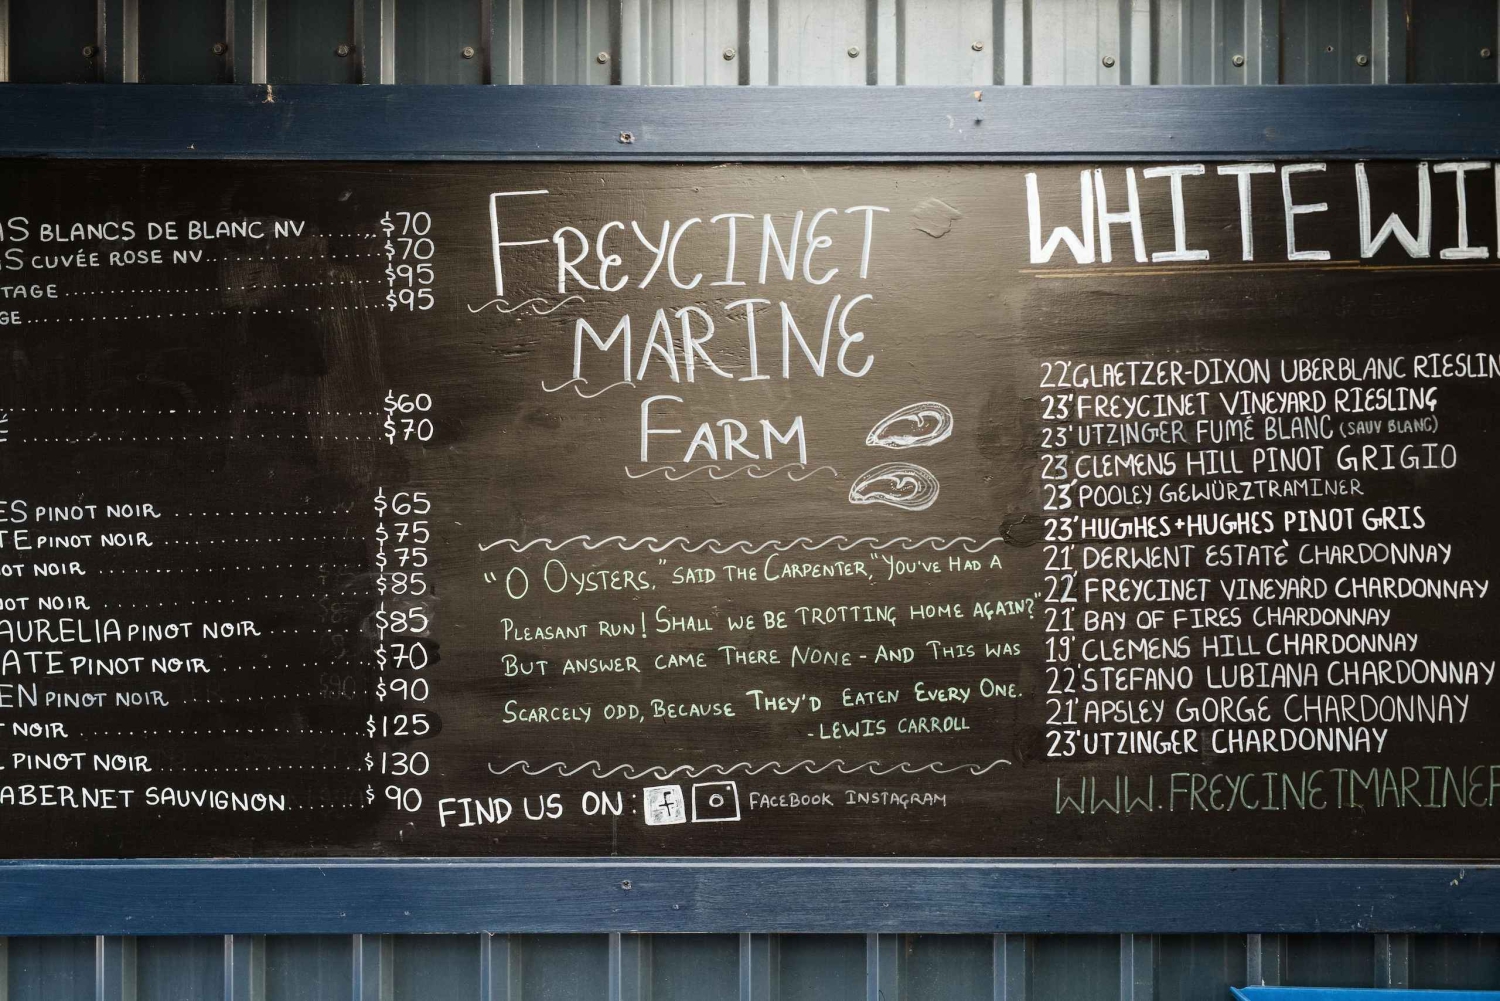 AS BLANCS DE BLANC NV ....... $70
AS CUVÉE ROSE NV ....... $70
TAGE ....... $95
GE ....... $95
....... $60
É ....... $70
ES PINOT NOIR ....... $65
TE PINOT NOIR ....... $75
OT NOIR ....... $75
NOT NOIR ....... $85
AURELIA PINOT NOIR ....... $85
ATE PINOT NOIR ....... $70
EN PINOT NOIR ....... $90
T NOIR ....... $125
L PINOT NOIR ....... $130
ABERNET SAUVIGNON ....... $90
FREYCINET
MARINE
FARM
"O OYSTERS," SAID THE CARPENTER, "YOU'VE HAD A
PLEASANT RUN! SHALL WE BE TROTTING HOME AGAIN?"
BUT ANSWER CAME THERE NONE - AND THIS WAS
SCARCELY ODD, BECAUSE THEY'D EATEN EVERY ONE.
- LEWIS CARROLL
FIND US ON: f FACEBOOK INSTAGRAM
WHITE WI
22' GLAETZER-DIXON UBERBLANC RIESLIN
23' FREYCINET VINEYARD RIESLING
23' UTZINGER FUMÉ BLANC (SAUV BLANC)
23' CLEMENS HILL PINOT GRIGIO
23' POOLEY GEWÜRZTRAMINER
23' HUGHES + HUGHES PINOT GRIS
21' DERWENT ESTATÈ CHARDONNAY
22' FREYCINET VINEYARD CHARDONNAY
21' BAY OF FIRES CHARDONNAY
19' CLEMENS HILL CHARDONNAY
22' STEFANO LUBIANA CHARDONNAY
21' APSLEY GORGE CHARDONNAY
23' UTZINGER CHARDONNAY
WWW.FREYCINETMARINEF